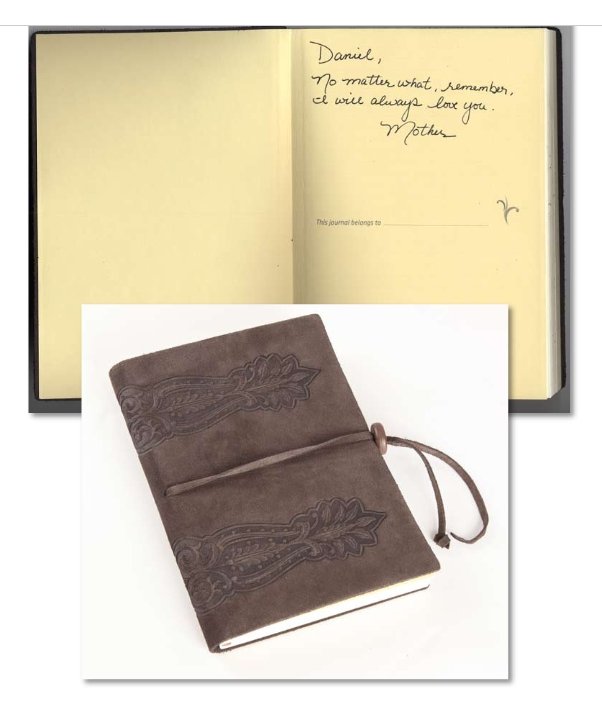 Daniel,
No matter what, remember,
I will always love you.
Mother
This journal belongs to